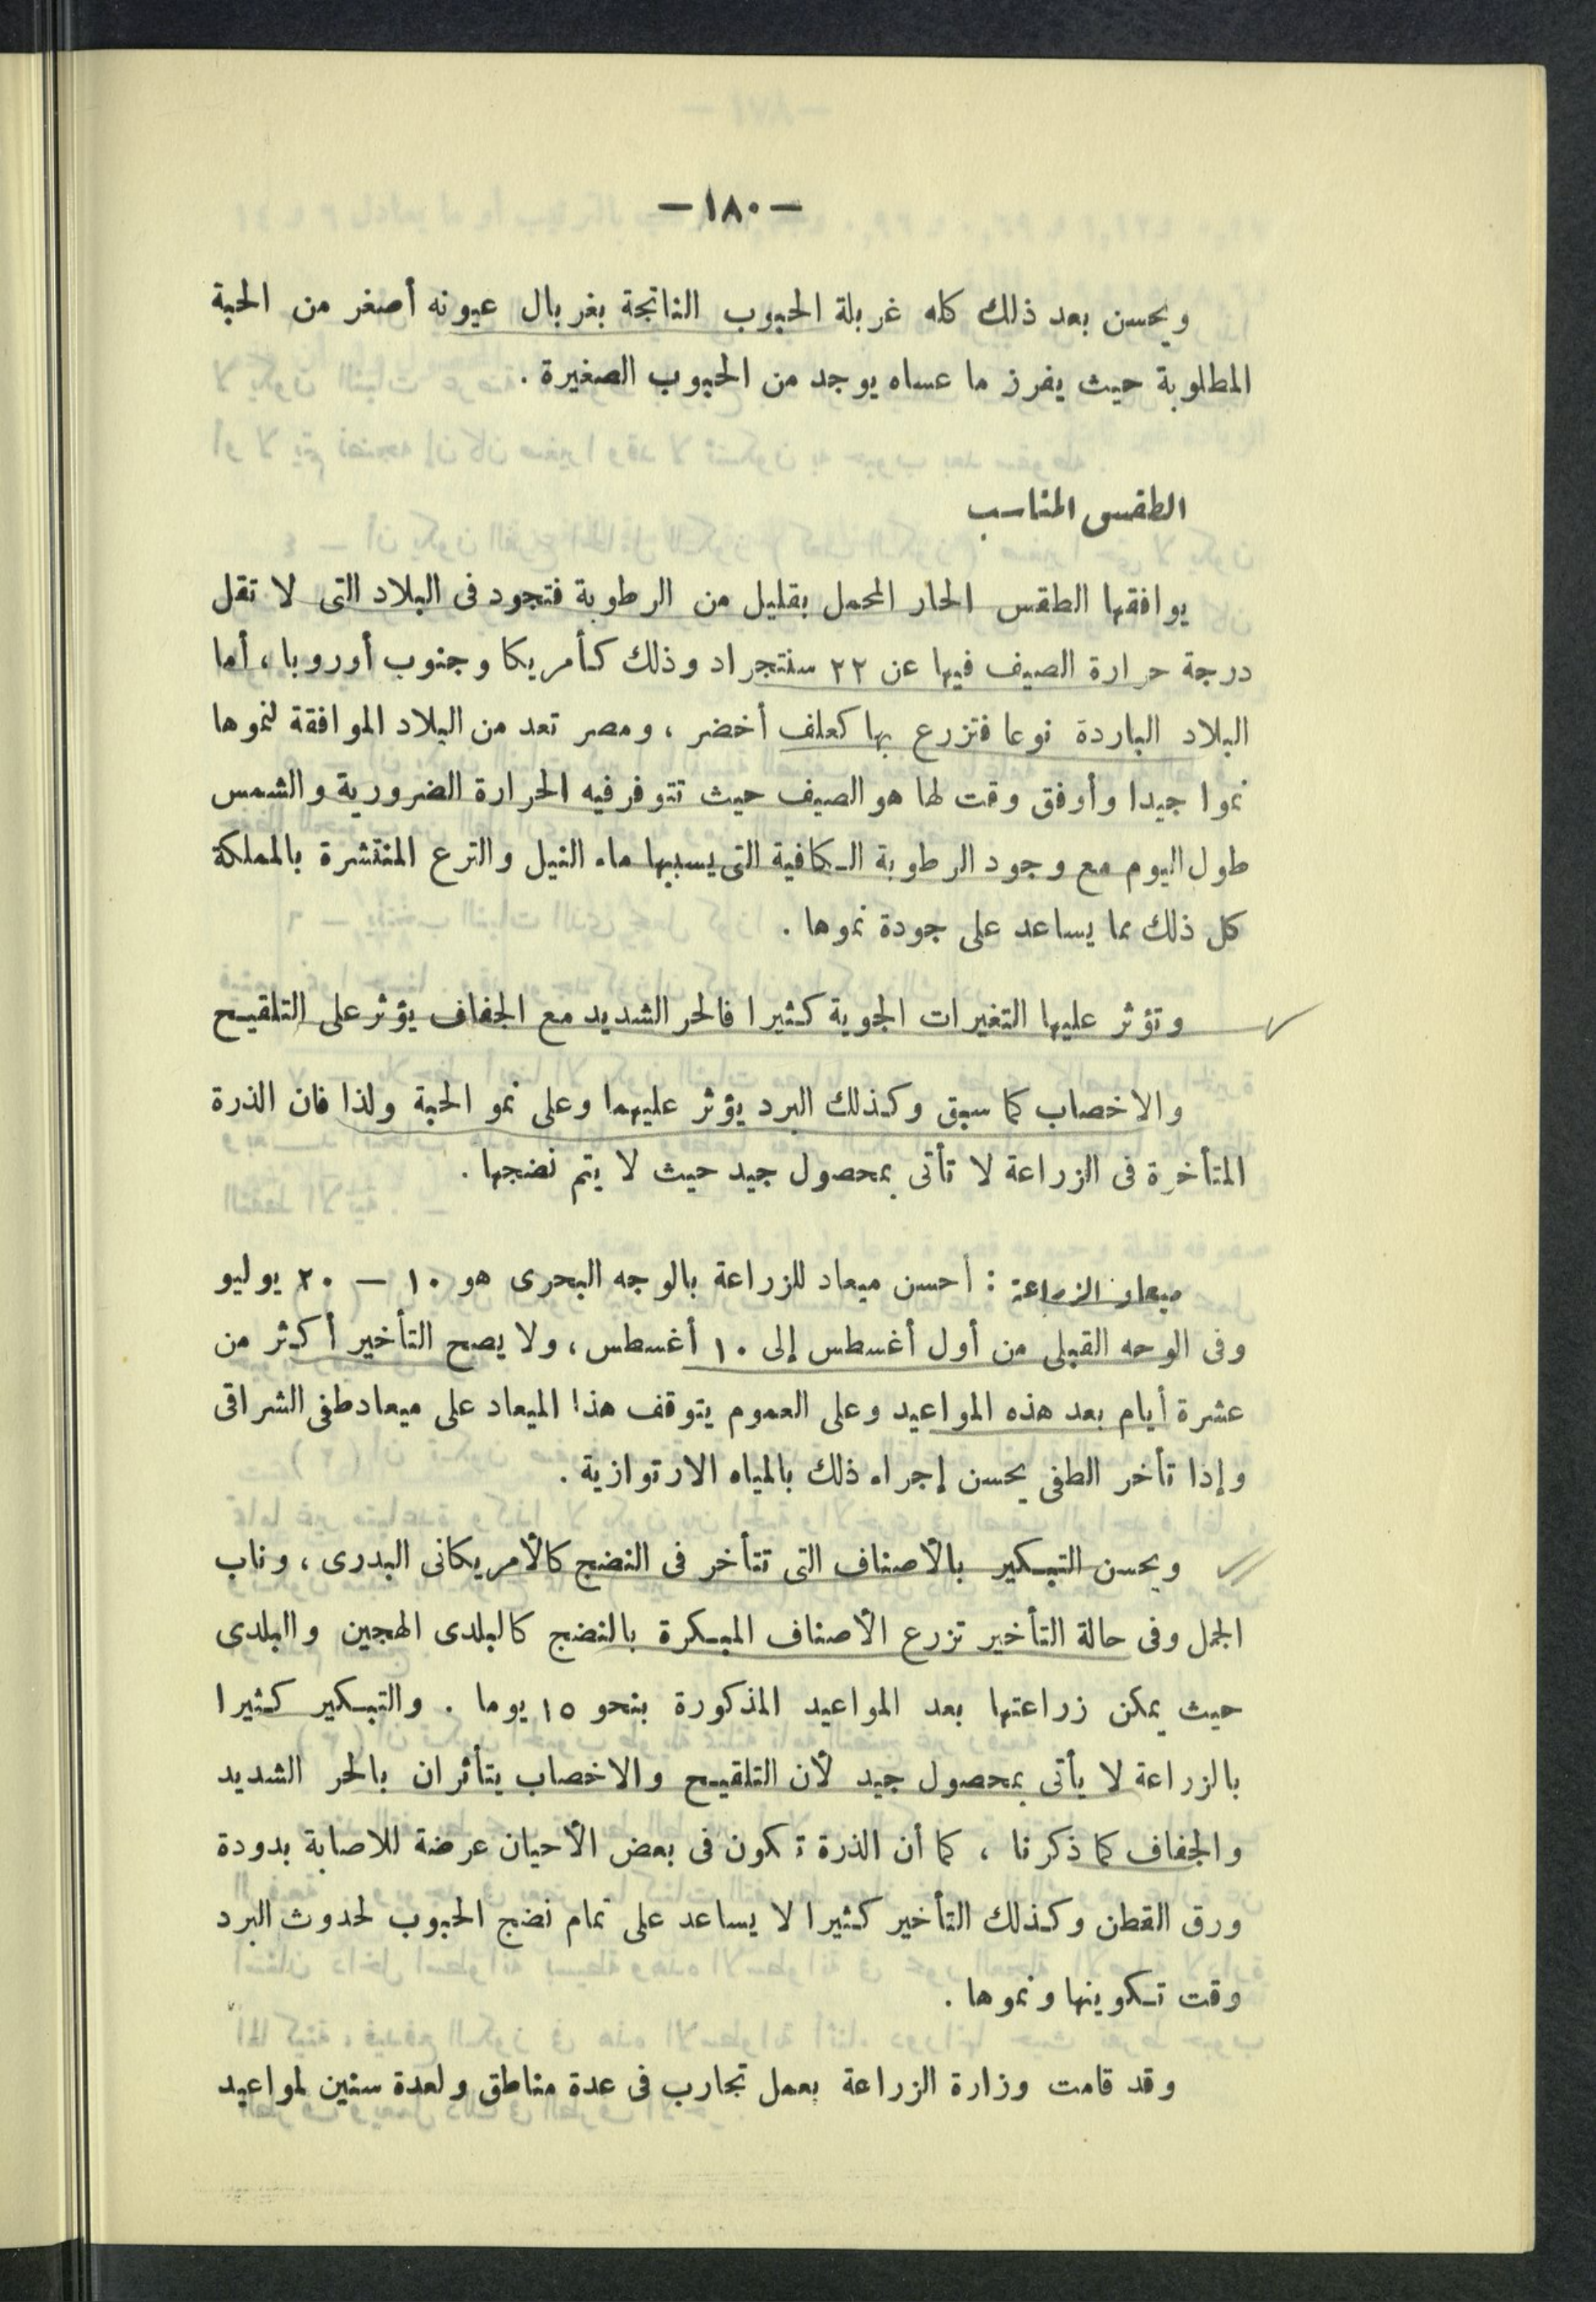 — ١٨٠ —
ويحسن بعد ذلك كله غربلة الحبوب الناتجة بغربال عيونه أصغر من الحبة
المطلوبة حيث يفرز ما عساه يوجد من الحبوب الصغيرة .
الطقس المناسب
يوافقها الطقس الحار المحمل بقليل من الرطوبة فتجود فى البلاد التى لا تقل
درجة حرارة الصيف فيها عن ٢٢ سنتجراد وذلك كأمريكا وجنوب أوروبا ، أما
البلاد الباردة نوعا فتزرع بها كعلف أخضر ، ومصر تعد من البلاد الموافقة لنموها
نموا جيدا وأوفق وقت لها هو الصيف حيث تتوفر فيه الحرارة الضرورية والشمس
طول اليوم مع وجود الرطوبة الكافية التى يسببها ماء النيل والترع المنتشرة بالمملكة
كل ذلك مما يساعد على جودة نموها .
وتؤثر عليها التغيرات الجوية كثيرا فالحر الشديد مع الجفاف يؤثر على التلقيح
والاخصاب كما سبق وكذلك البرد يؤثر عليهما وعلى نمو الحبة ولذا فان الذرة
المتأخرة فى الزراعة لا تأتى بمحصول جيد حيث لا يتم نضجها .
ميعاد الزراعة : أحسن ميعاد للزراعة بالوجه البحرى هو ١٠ — ٢٠ يوليو
وفى الوجه القبلى من أول أغسطس إلى ١٠ أغسطس ، ولا يصح التأخير أكثر من
عشرة أيام بعد هذه المواعيد وعلى العموم يتوقف هذا الميعاد على ميعاد طفى الشراقى
وإذا تأخر الطفى يحسن إجراء ذلك بالمياه الارتوازية .
ويحسن التبكير بالأصناف التى تتأخر فى النضج كالأمريكانى البدرى ، وناب
الجمل وفى حالة التأخير تزرع الأصناف المبكرة بالنضج كالبلدى الهجين والبلدى
حيث يمكن زراعتها بعد المواعيد المذكورة بنحو ١٥ يوما . والتبكير كثيرا
بالزراعة لا يأتى بمحصول جيد لأن التلقيح والاخصاب يتأثران بالحر الشديد
والجفاف كما ذكرنا ، كما أن الذرة تكون فى بعض الأحيان عرضة للاصابة بدودة
ورق القطن وكذلك التأخير كثيرا لا يساعد على تمام نضج الحبوب لحدوث البرد
وقت تكوينها ونموها .
وقد قامت وزارة الزراعة بعمل تجارب فى عدة مناطق ولعدة سنين لمواعيد